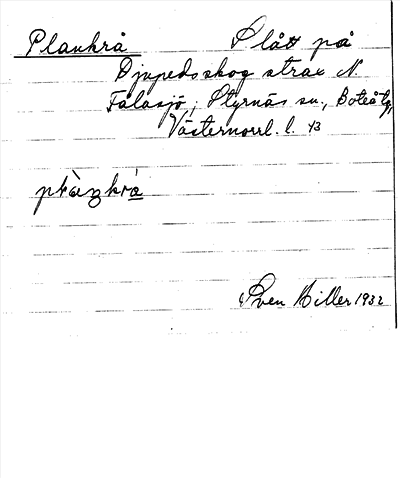 Plankrå Slått på
Djupedsskog strax N.
Fälasjö, Styrnäs sn., Boteå tg,
Västernorrl. l. 43
plàŋkrå
Sven Hiller 1932